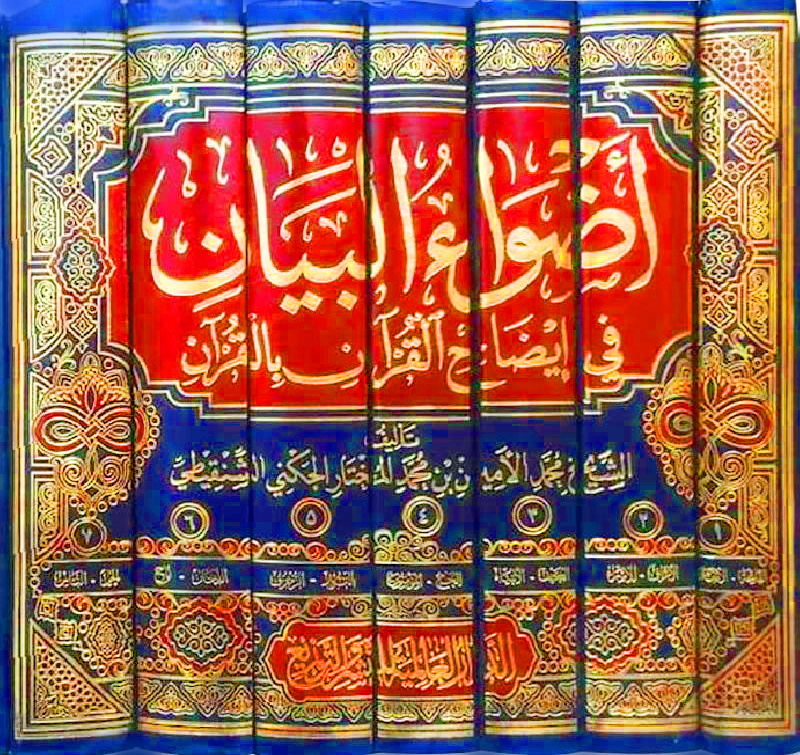 أَضْوَاءُ البَيَانِ
فِي إِيضَاحِ القُرْآنِ بِالقُرْآنِ
تَأليفُ
الشَّيْخ مُحَمَّد الأَمِين بْنِ مُحَمَّدٍ المُخْتَار الجَكَنِي الشَّنْقِيطِيّ
١ ٢ ٣ ٤ ٥ ٦ ٧
الدار العالمية للنشر والتوزيع